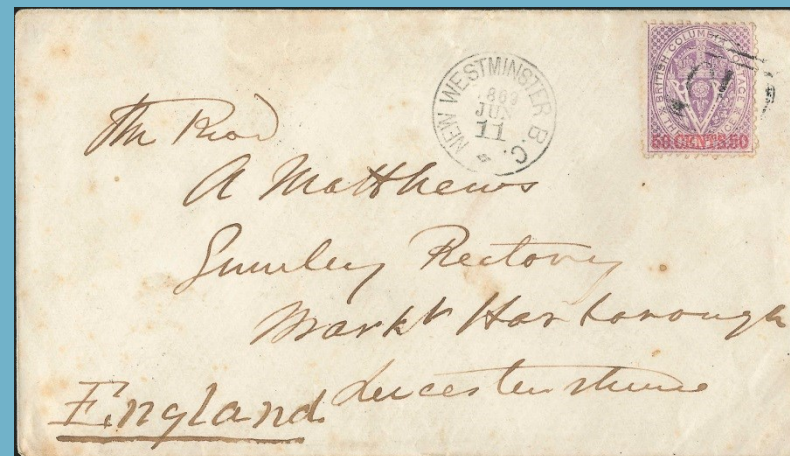 NEW WESTMINSTER B.C.
1869
JUN
11
BRITISH COLUMBIA POSTAGE
50 CENTS.50
The Revd
A Matthews
Gumley Rectory
Markt Harborough
Leicestershire
England